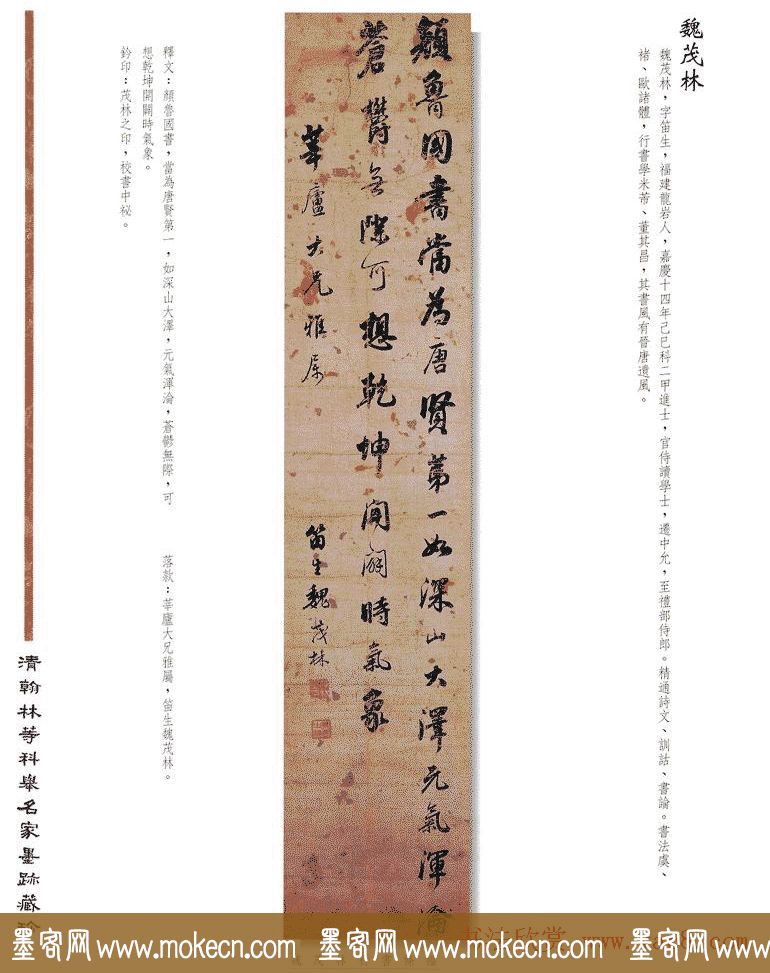 魏茂林
魏茂林，字笛生，福建龍岩人，嘉慶十四年己巳科二甲進士，官侍讀學士，遷中允，至禮部侍郎。精通詩文、訓詁、書論。書法虞、
褚、歐諸體，行書學米芾、董其昌，其書風有晉唐遺風。
顏魯國書當為唐賢第一如深山大澤元氣渾淪
蒼鬱無際可想乾坤開闢時氣象
莘廬大兄雅屬
笛生魏茂林
釋文：顏魯國書，當為唐賢第一，如深山大澤，元氣渾淪，蒼鬱無際，可
想乾坤開闢時氣象。
鈐印：茂林之印，校書中秘。
落款：莘廬大兄雅屬，笛生魏茂林。
清翰林等科舉名家墨跡藏
书法欣赏
墨客网 www.mokecn.com 墨客网 www.mokecn.com 墨客网 www.mokecn.com